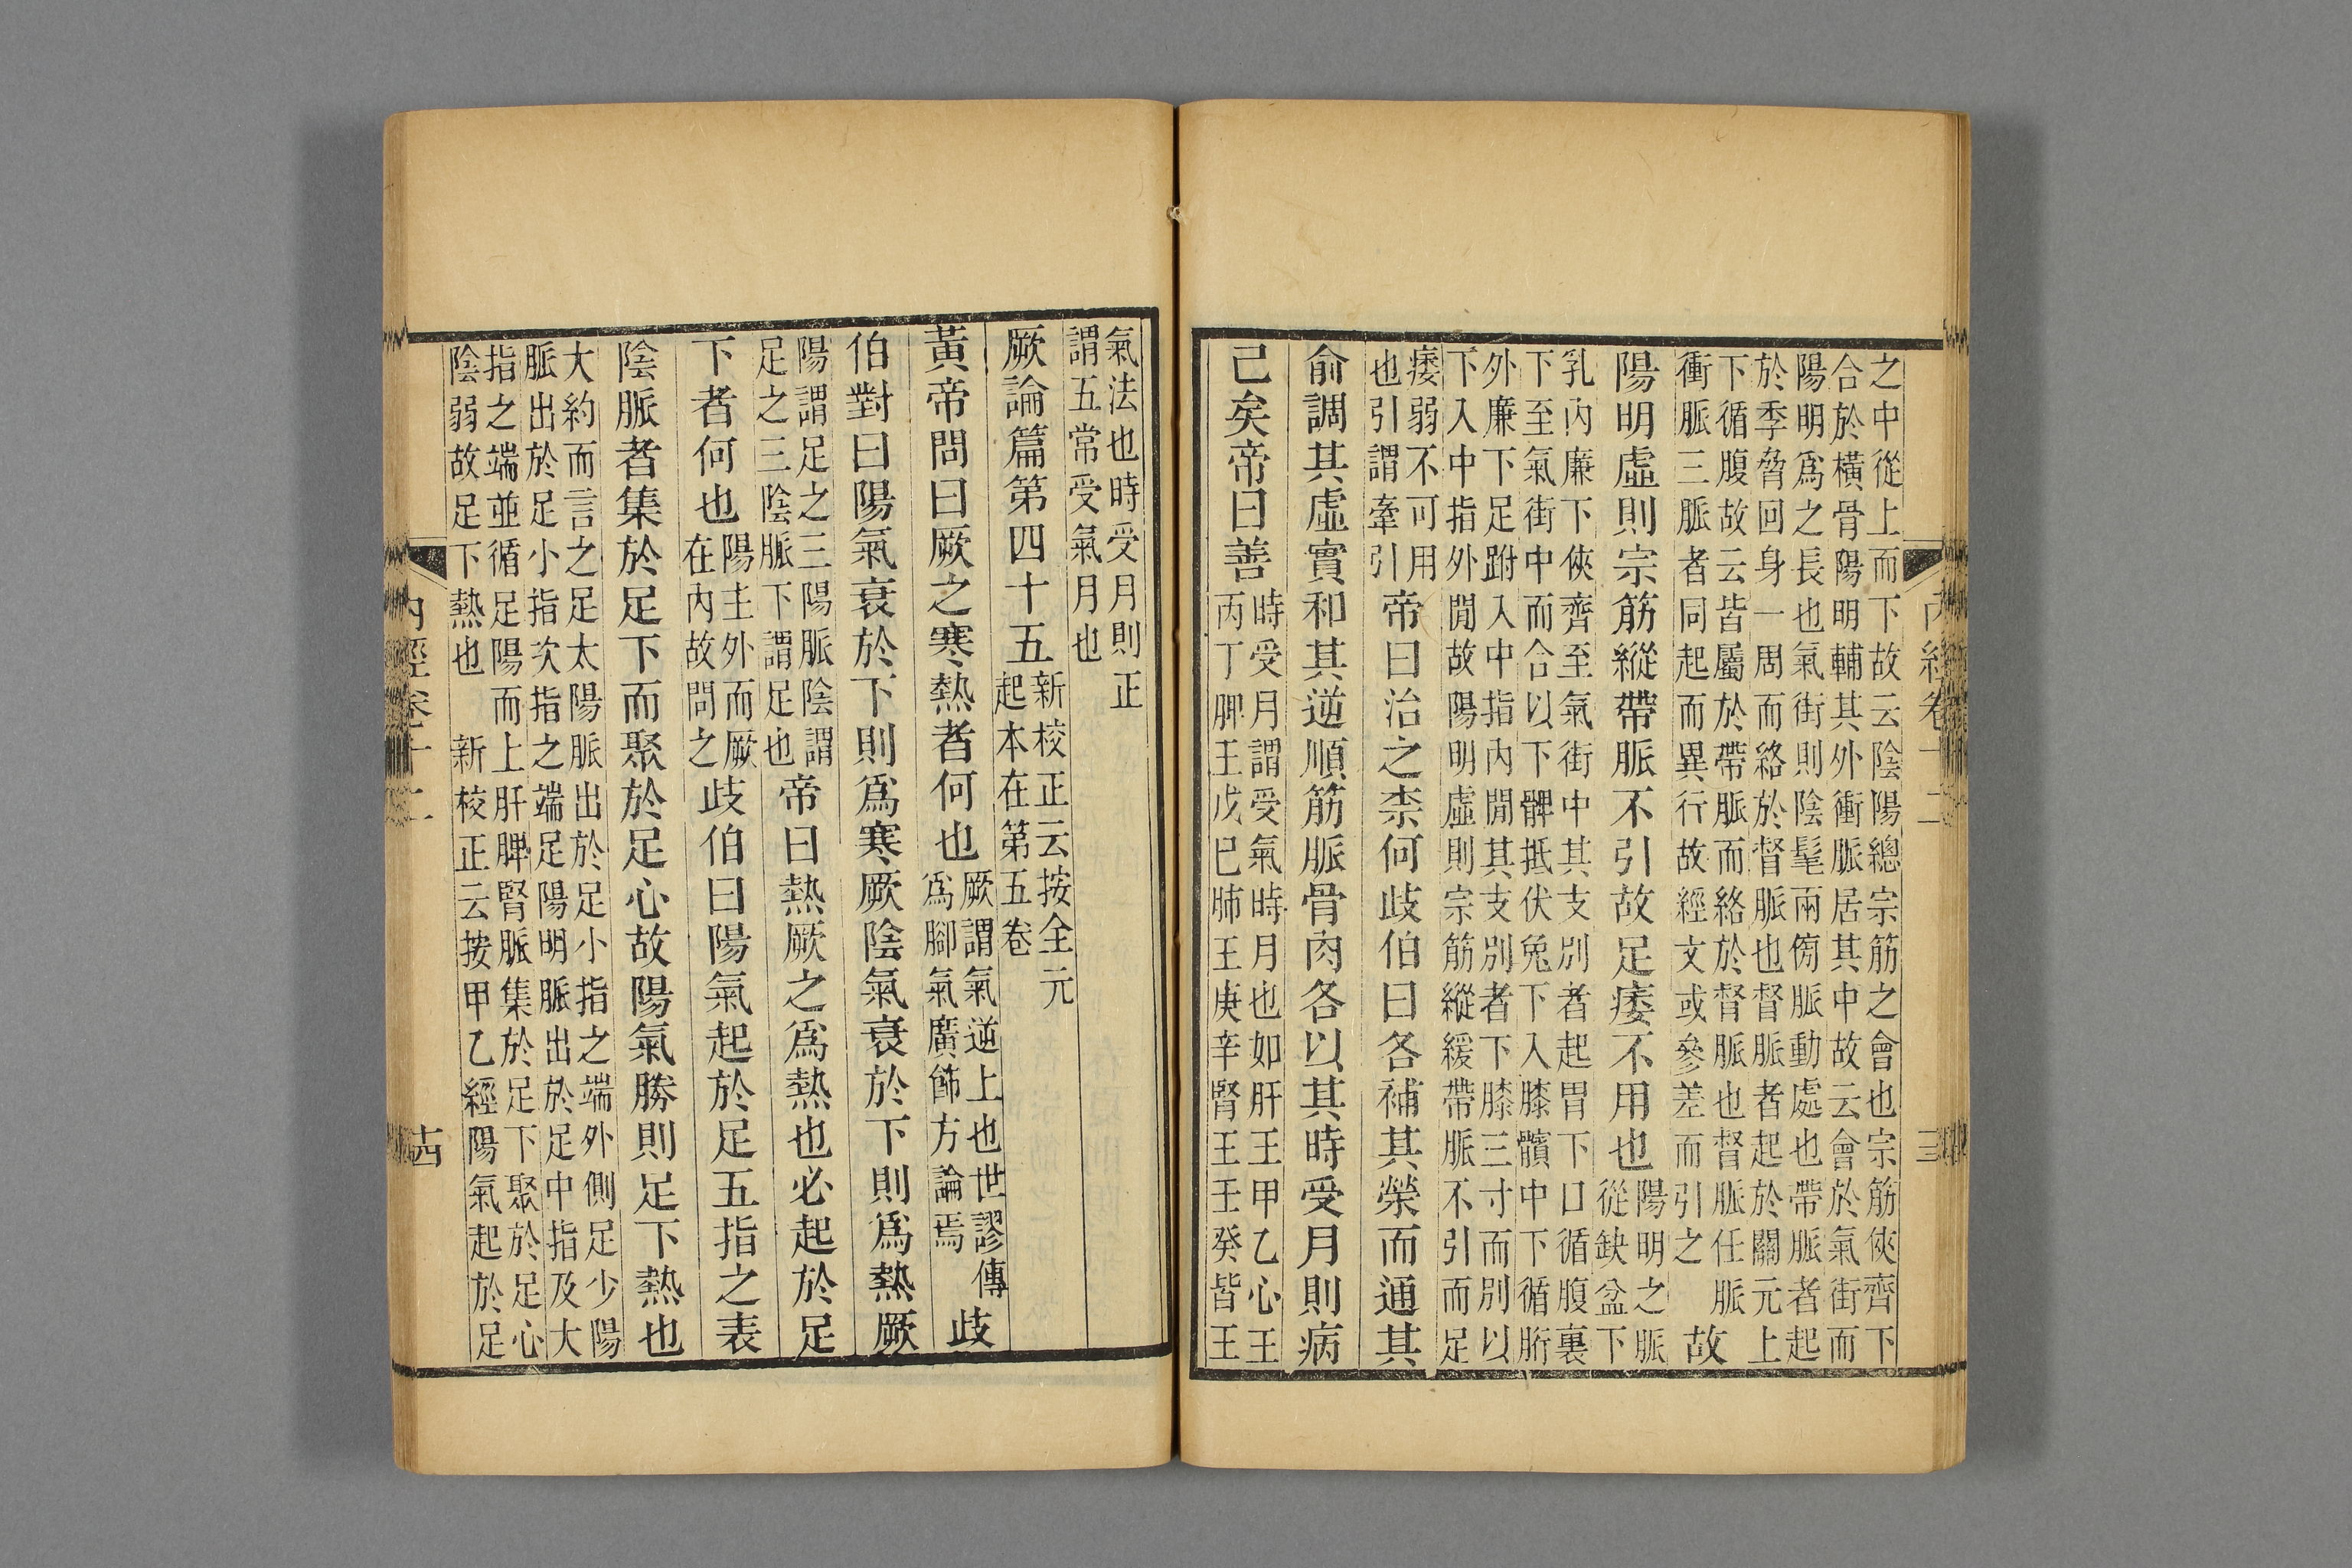 之中從上而下故云陰陽總宗筋之會也宗筋俠齊下
合於橫骨陽明輔其外衝脈居其中故云會於氣街而
陽明爲之長也氣街則陰髦兩傍脈動處也帶脈者起
於季脅回身一周而絡於督脈也督脈者起於關元上
下循腹故云皆屬於帶脈而絡於督脈也督脈任脈
衝脈三脈者同起而異行故經文或參差而引之 故
陽明虛則宗筋縱帶脈不引故足痿不用也 陽明之脈
從缺盆下
乳內廉下俠齊至氣街中其支別者起胃下口循腹裏
下至氣街中而合以下髀抵伏兔下入膝髕中下循胻
外廉下足跗入中指內閒其支別者下膝三寸而別以
下入中指外閒故陽明虛則宗筋縱緩帶脈不引而足
痿弱不可用
也引謂牽引 帝曰治之柰何歧伯曰各補其榮而通其
俞調其虛實和其逆順筋脈骨肉各以其時受月則病
已矣帝曰善 時受月謂受氣時月也如肝王甲乙心王
丙丁脾王戊巳肺王庚辛腎王壬癸皆王
氣法也時受月則正
謂五常受氣月也
厥論篇第四十五 新校正云按全元
起本在第五卷
黃帝問曰厥之寒熱者何也 厥謂氣逆上也世謬傳
爲腳氣廣飾方論焉 歧
伯對曰陽氣衰於下則爲寒厥陰氣衰於下則爲熱厥
陽謂足之三陽脈陰謂
足之三陰脈下謂足也 帝曰熱厥之爲熱也必起於足
下者何也 陽主外而厥
在內故問之 歧伯曰陽氣起於足五指之表
陰脈者集於足下而聚於足心故陽氣勝則足下熱也
大約而言之足太陽脈出於足小指之端外側足少陽
脈出於足小指次指之端足陽明脈出於足中指及大
指之端並循足陽而上肝脾腎脈集於足下聚於足心
陰弱故足下熱也 新校正云按甲乙經陽氣起於足
內經卷十二
十四